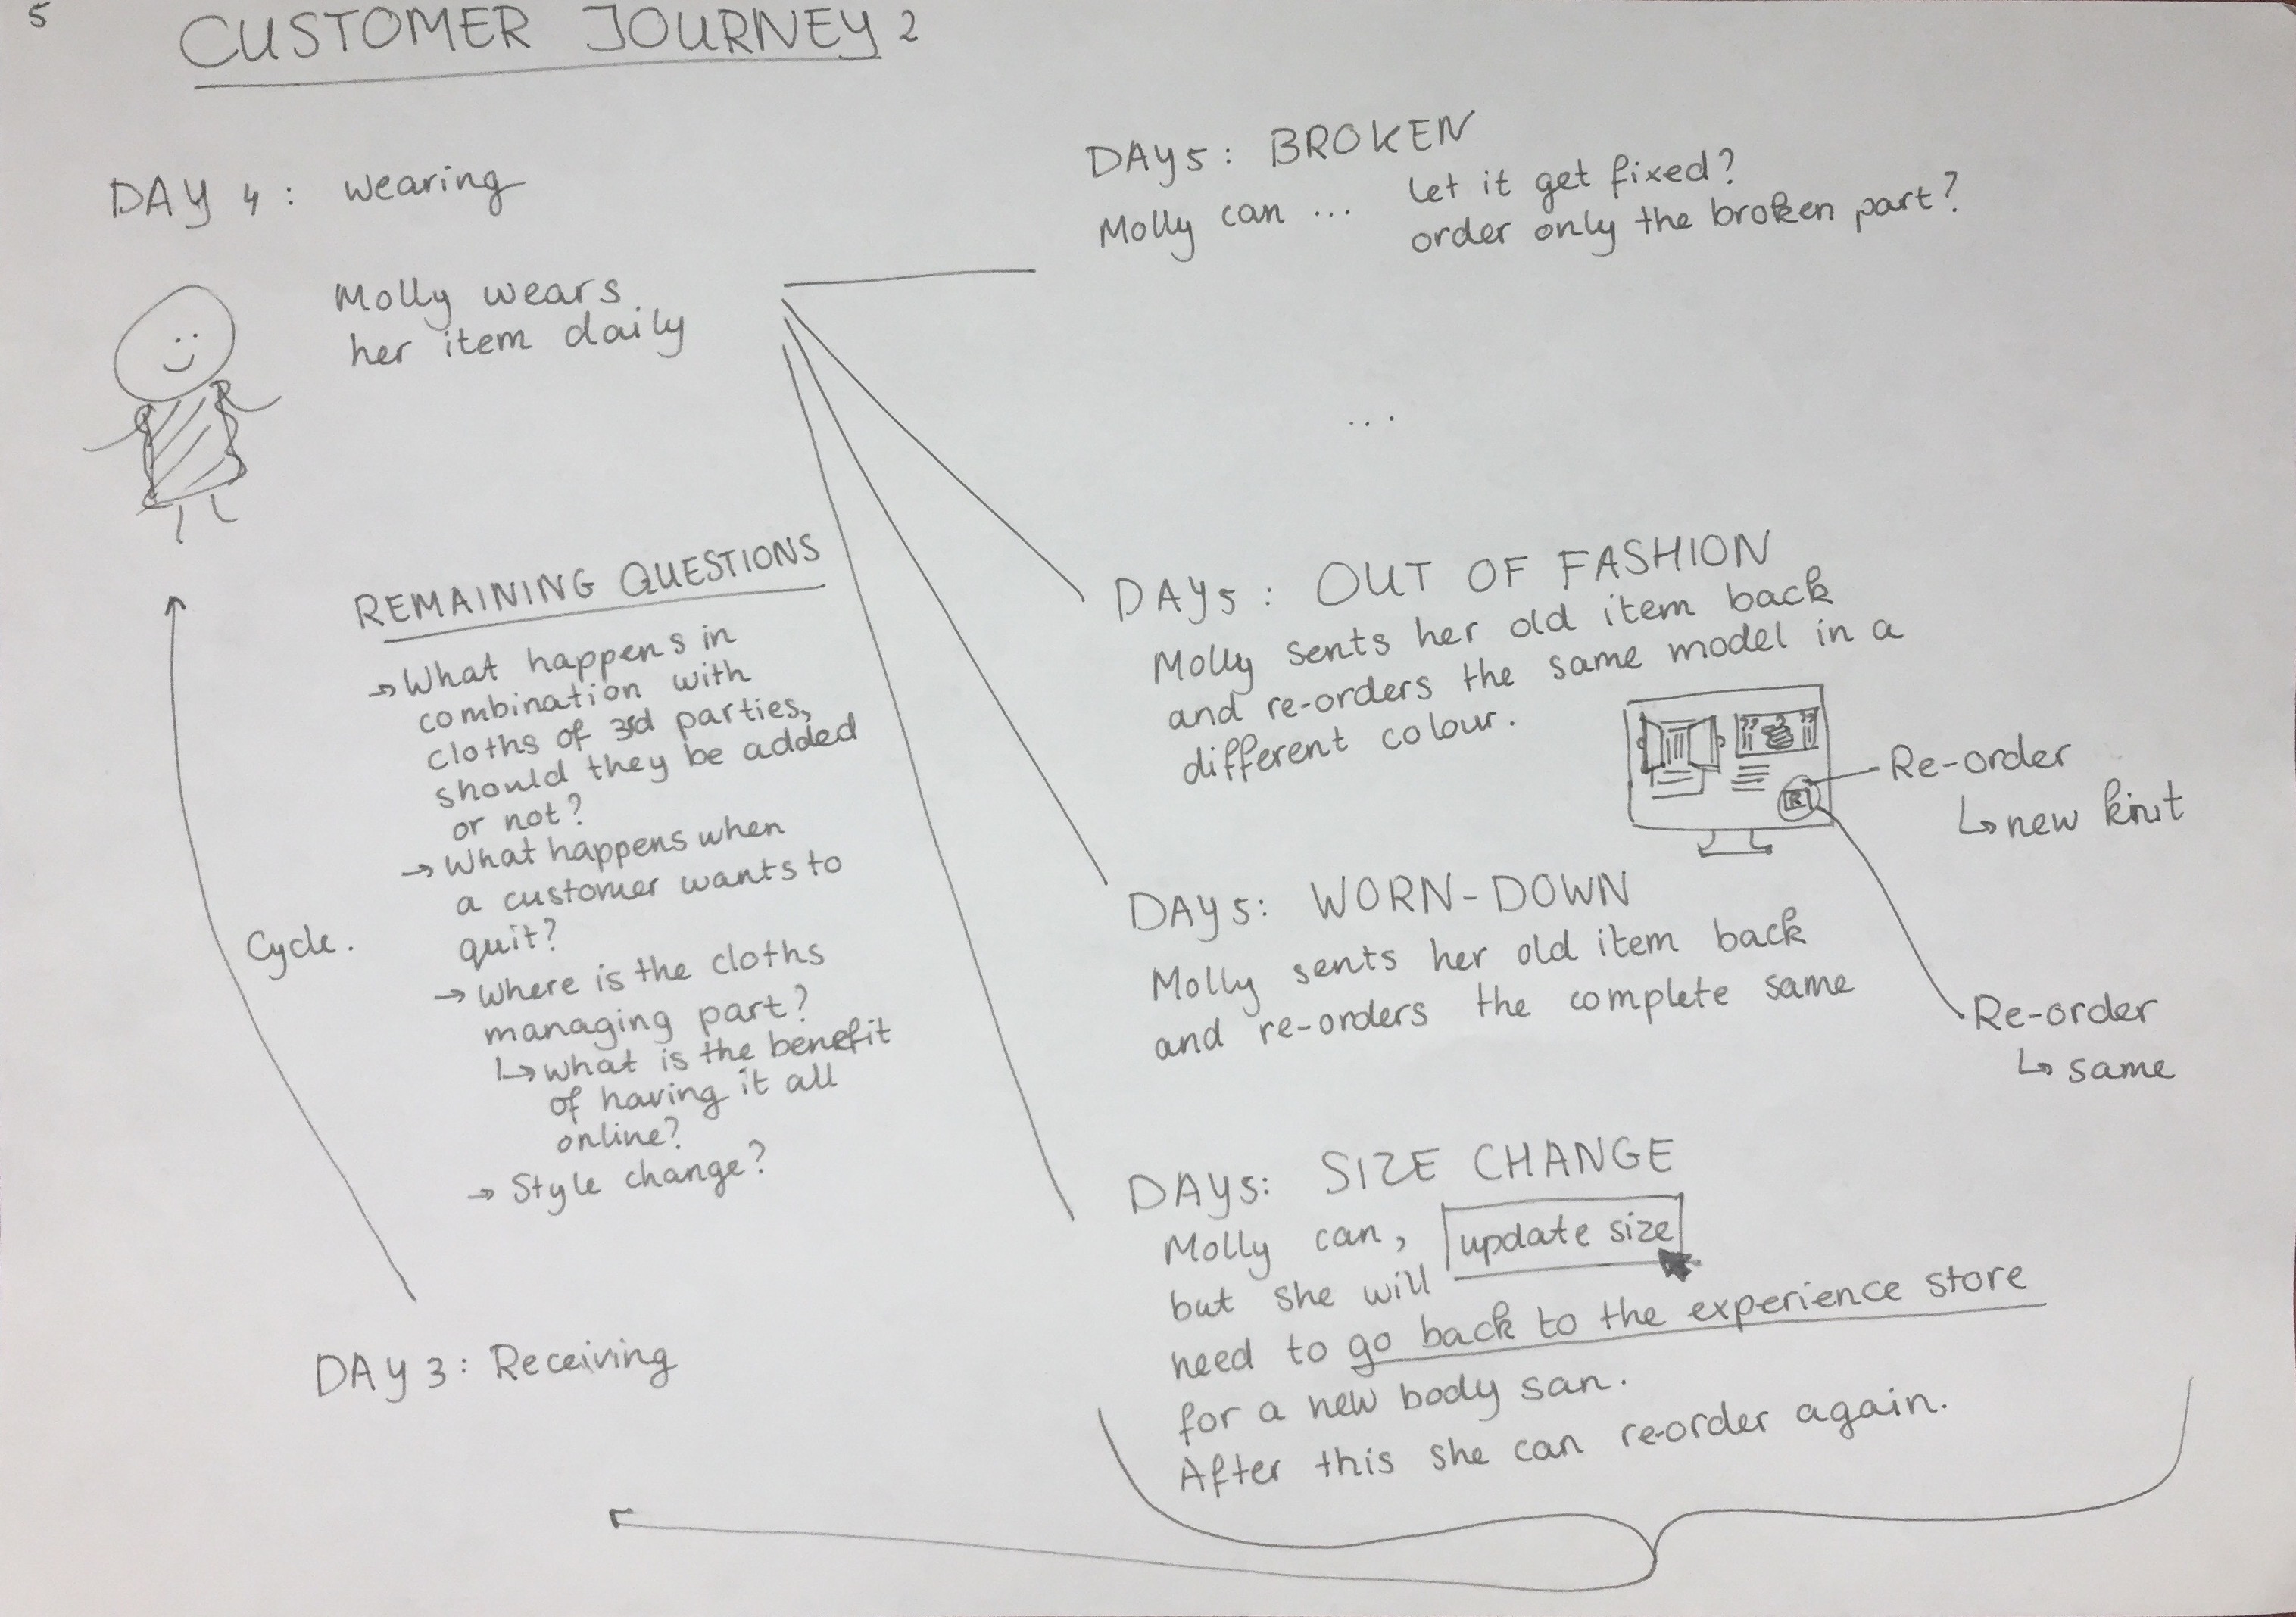 5
CUSTOMER JOURNEY 2
DAY 4 : wearing
Molly wears
her item daily
DAY 5 : BROKEN
Molly can ... let it get fixed?
order only the broken part?
...
DAY 5 : OUT OF FASHION
Molly sents her old item back
and re-orders the same model in a
different colour.
Re-order
↳ new knit
DAY 5: WORN-DOWN
Molly sents her old item back
and re-orders the complete same
Re-order
↳ same
DAY 5: SIZE CHANGE
Molly can, update size
but she will
need to go back to the experience store
for a new body san.
After this she can re-order again.
REMAINING QUESTIONS
→ What happens in
combination with
cloths of 3rd parties,
should they be added
or not?
→ What happens when
a customer wants to
quit?
→ Where is the cloths
managing part?
↳ What is the benefit
of having it all
online?
→ Style change?
Cycle.
DAY 3 : Receiving